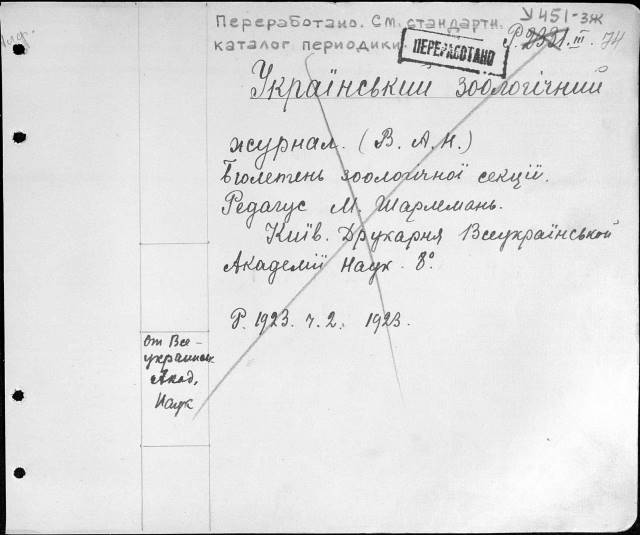 Переработано. См. стандартн. У 451-зж
каталог периодики. ПЕРЕРАБОТАНО Р. 2331.III.74
Український зоологічний
журнал. (В. А. Н.)
Бюлетень зоологічної секції.
Редагує М. Шарлемань.
Київ. Друкарня Всеукраїнської
Академії Наук. 8°.
Р. 1923. ч. 2. 1923.
от Все-
украинск
Акад.
Наук